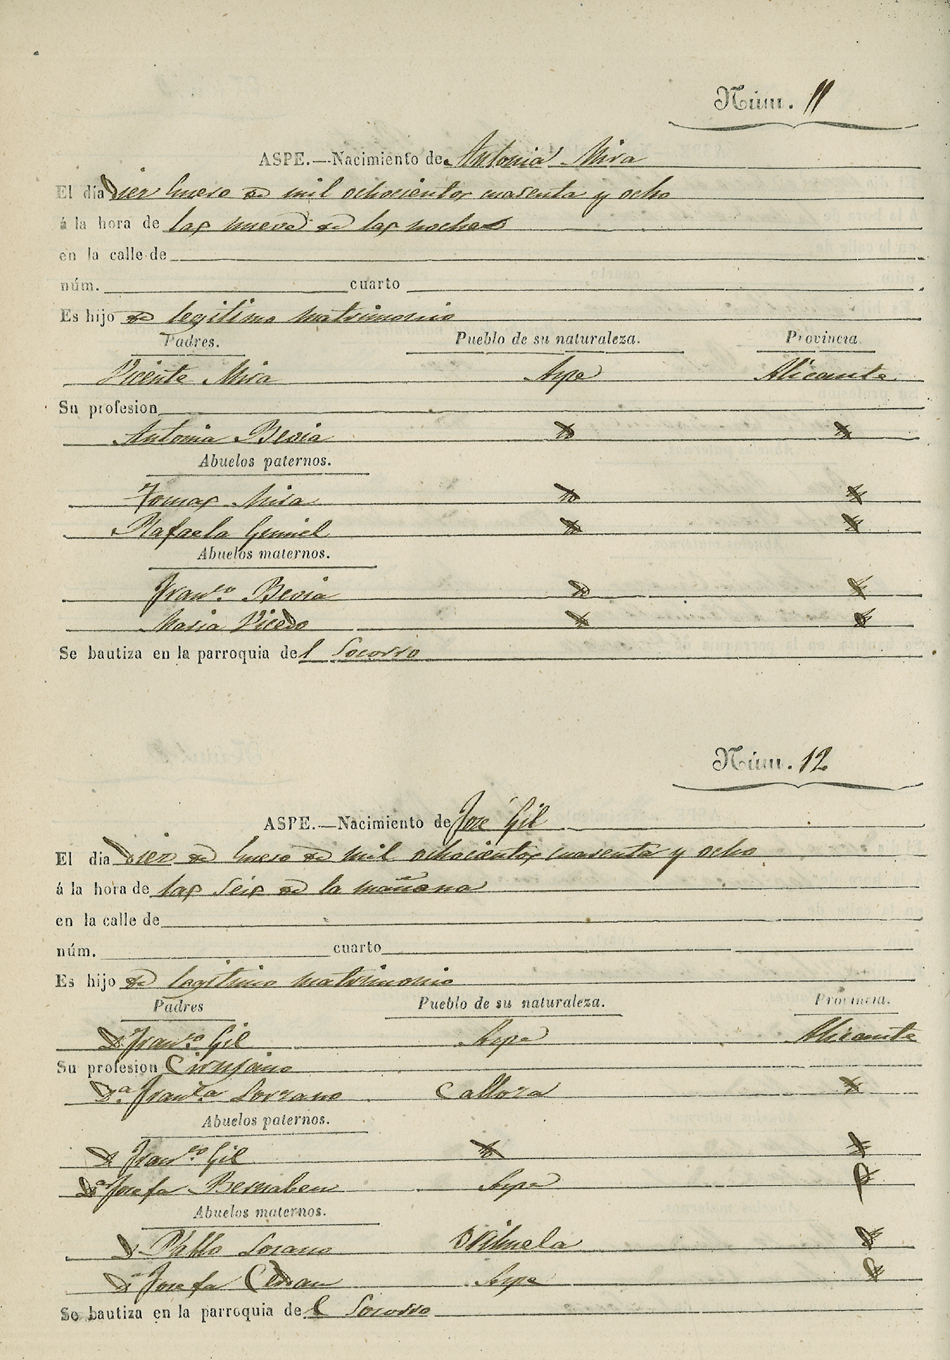 Núm. 11
ASPE.—Nacimiento de Antonia Mira
El día Diez Enero de mil ochocientos cuarenta y ocho
á la hora de las nueve de las noches
en la calle de
núm. cuarto
Es hijo de legitimo matrimonio
Padres. Pueblo de su naturaleza. Provincia.
Vicente Mira Aspe Alicante
Su profesion
Antonia Bevia
Abuelos paternos.
Tomas Mira
Rafaela Gumiel
Abuelos maternos.
Franco Bevia
Maria Vicedo
Se bautiza en la parroquia del Socorro
Núm. 12
ASPE.—Nacimiento de José Gil
El día Diez de Enero de mil ochocientos cuarenta y ocho
á la hora de las seis de la mañana
en la calle de
núm. cuarto
Es hijo de legitimo matrimonio
Padres Pueblo de su naturaleza. Provincia.
D Franco Gil Aspe Alicante
Su profesion Cirujano
Da Franca Lorzano Callosa
Abuelos paternos.
D Franco Gil
Da Josefa Bernabeu Aspe
Abuelos maternos.
D Pablo Lozano Orihuela
Da Josefa Aspe
Se bautiza en la parroquia del Socorro